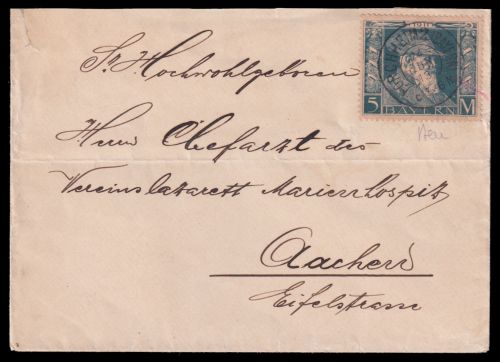 1911
5 BAYERN M
Neu
Sr. Hochwohlgeboren
Herrn Chefarzt des
Vereinslazarett Marienhospitz
Aachen
Eifelstrasse